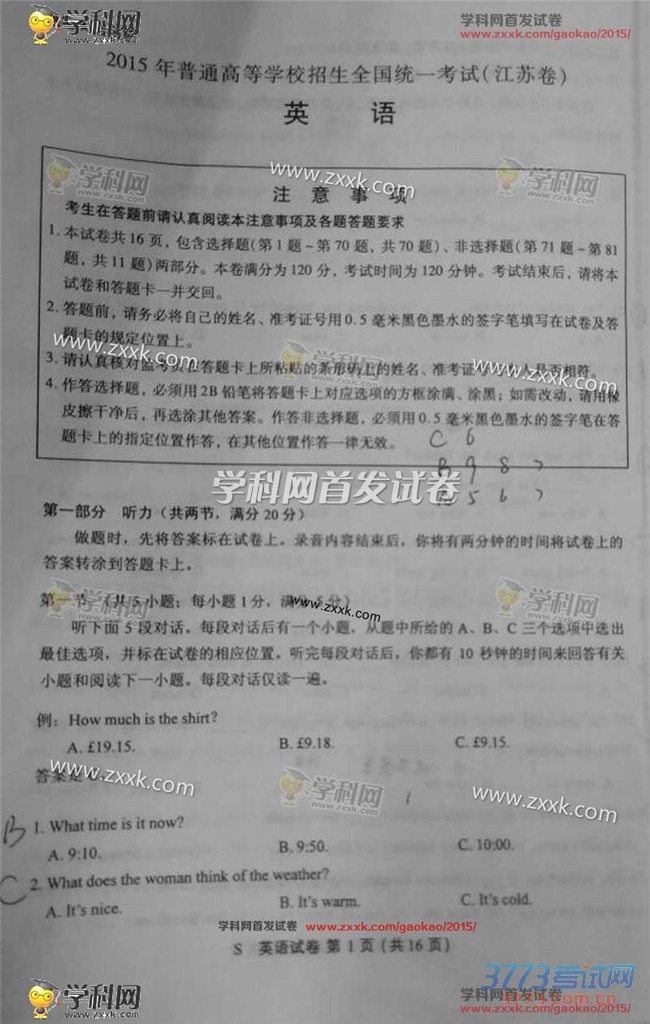 学科网
学科网首发试卷
www.zxxk.com/gaokao/2015/
2015年普通高等学校招生全国统一考试(江苏卷)
英 语
学科网
学科网
www.zxxk.com
注 意 事 项
考生在答题前请认真阅读本注意事项及各题答题要求
1. 本试卷共16页，包含选择题(第1题~第70题，共70题)、非选择题(第71题~第81
题，共11题)两部分。本卷满分为120分，考试时间为120分钟。考试结束后，请将本
试卷和答题卡一并交回。
2. 答题前，请务必将自己的姓名、准考证号用0.5毫米黑色墨水的签字笔填写在试卷及答
题卡的规定位置上。
www.zxxk.com
学科网
www.zxxk.com
3. 请认真核对监考员在答题卡上所粘贴的条形码上的姓名、准考证 人是否相符。
4. 作答选择题，必须用2B铅笔将答题卡上对应选项的方框涂满、涂黑；如需改动，请用橡
皮擦干净后，再选涂其他答案。作答非选择题，必须用0.5毫米黑色墨水的签字笔在答
题卡上的指定位置作答，在其他位置作答一律无效。
C 6
B 9 8 7
5 6 7
学科网首发试卷
第一部分 听力(共两节，满分20分)
做题时，先将答案标在试卷上。录音内容结束后，你将有两分钟的时间将试卷上的
答案转涂到答题卡上。
学科网
www.zxxk.com
学科网
第一节 (共5小题；每小题1分，满分5分)
听下面5段对话。每段对话后有一个小题，从题中所给的A、B、C三个选项中选出
最佳选项，并标在试卷的相应位置。听完每段对话后，你都有10秒钟的时间来回答有关
小题和阅读下一小题。每段对话仅读一遍。
例: How much is the shirt?
A. £19.15. B. £9.18. C. £9.15.
答案是
www.zxxk.com
学科网
www.zxxk.com
B 1. What time is it now?
A. 9:10. B. 9:50. C. 10:00.
C 2. What does the woman think of the weather?
A. It's nice. B. It's warm. C. It's cold.
学科网首发试卷 www.zxxk.com/gaokao/2015/
S 英语试卷 第1页(共16页)
3773考试网
学科网
学科网首发试卷
www.zxxk.com/gaokao/2015/